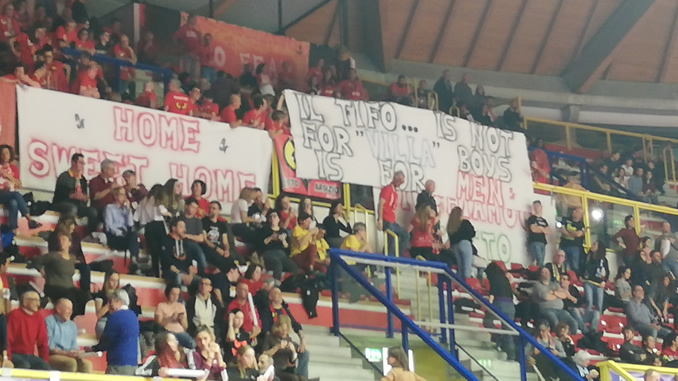 HOME
SWEET HOME
IL TIFO... IS NOT
FOR "VILLA" BOYS
IS FOR MEN